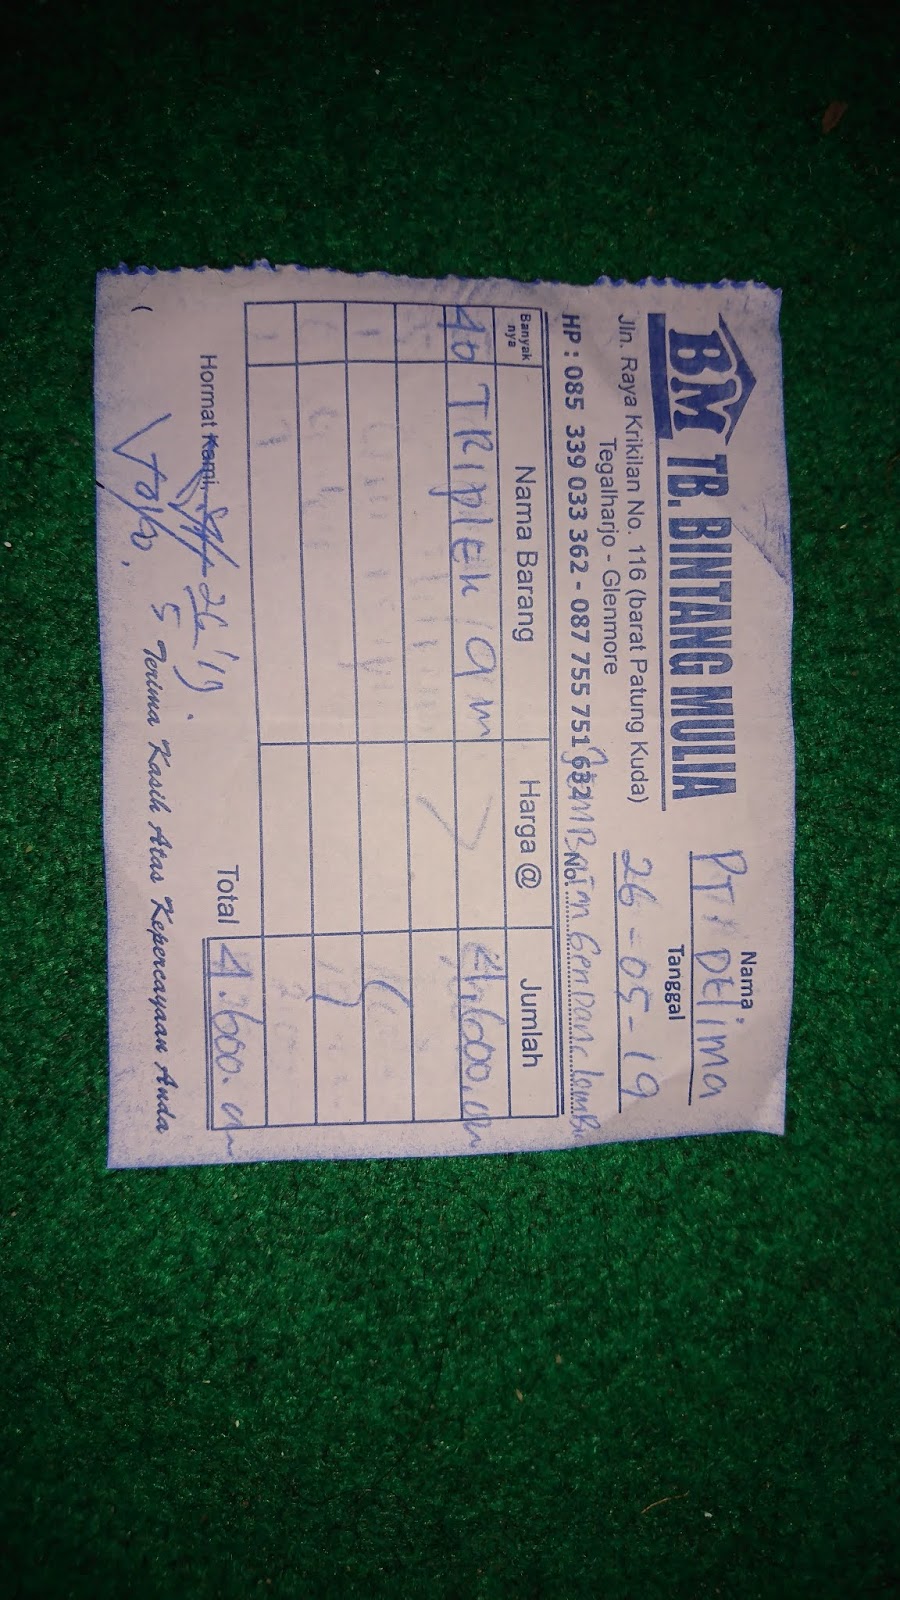 BM TB. BINTANG MULIA
Jln. Raya Krikilan No. 116 (barat Patung Kuda)
Tegalharjo - Glenmore
HP : 085 339 033 362 - 087 755 751 632
Nama
PT / DElima
Tanggal
26-05-19
No.
Banyak nya Nama Barang Harga @ Jumlah
40 TRiplek 9 m 4,600.
Total 4.600.
Hormat Kami,
26/5 '19.
Terima Kasih Atas Kepercayaan Anda